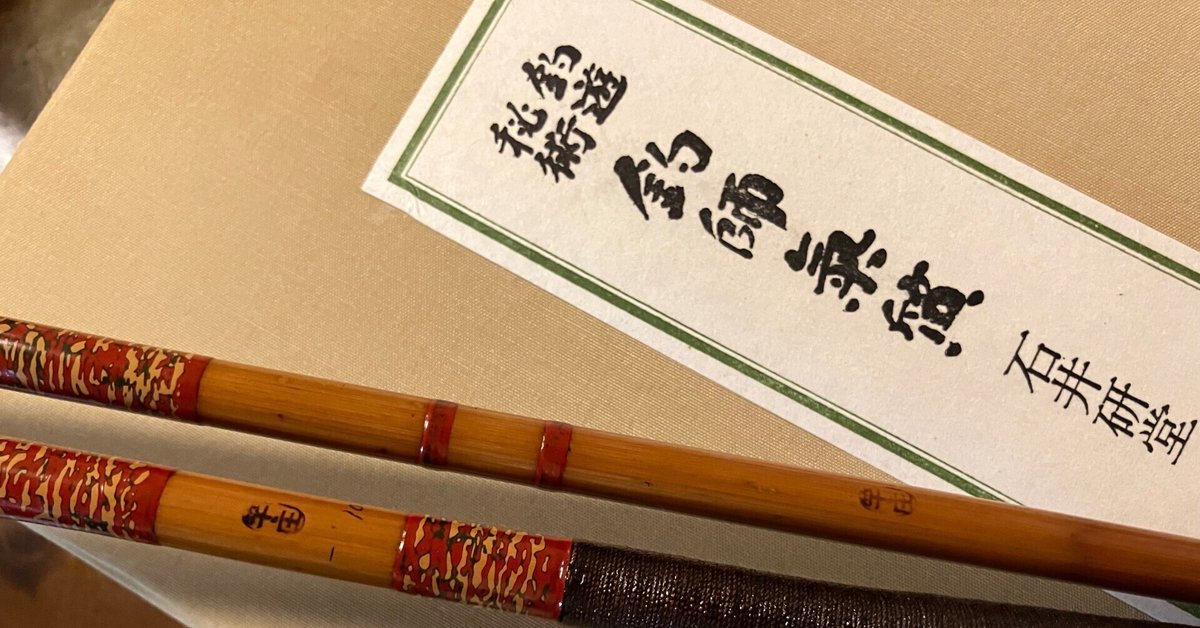 釣遊
秘術
釣師気質
石井研堂